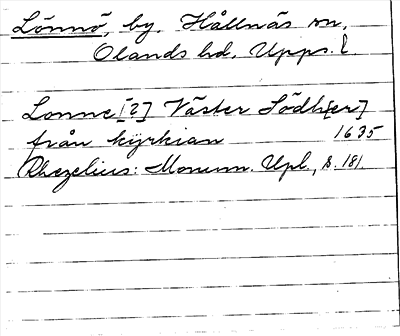 Lönnö, by, Hållnäs sn,
Olands hd, Upps. l.
Lonne [?] Väster Södh[er]
från kyrkian 1635
Rhezelius: Monum. Upl., s. 181.